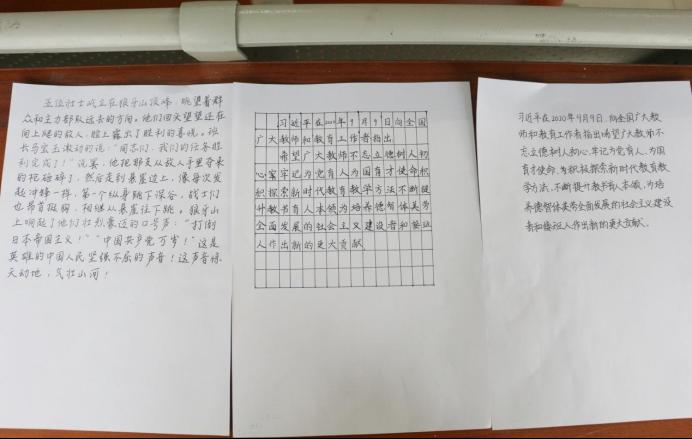 五位壮士屹立在狼牙山顶峰，眺望着群
众和主力部队远去的方向。他们回头望望还在
向上爬的敌人，脸上露出了胜利的喜悦。班
长马宝玉激动的说：“同志们，我们的任务胜
利完成了！”说罢，他把那支从敌人手里夺来
的枪砸碎了，然后走到悬崖边上，像每次发
起冲锋一样，第一个纵身跳下深谷。战士们
也昂首挺胸，相继从悬崖往下跳。狼牙山
上响起了他们壮烈豪迈的口号声：“打倒
日本帝国主义！”“中国共产党万岁！”这是
英雄的中国人民坚强不屈的声音！这声音惊
天动地，气壮山河！
习近平在2020年9月9日向全国
广大教师和教育工作者指出
希望广大教师不忘立德树人初
心牢记为党育人为国育才使命积
积探索新时代教育教学方法不断提
升教书育人本领为培养德智体美劳
全面发展的社会主义建设者和接班
人作出新的更大贡献
习近平在2020年9月9日，向全国广大教
师和教育工作者指出希望广大教师不
忘立德树人初心，牢记为党育人、为国
育才使命，为积极探索新时代教育教
学方法，不断提升教书育人本领，为培
养德智体美劳全面发展的社会主义建设
者和接班人作出新的更大贡献。